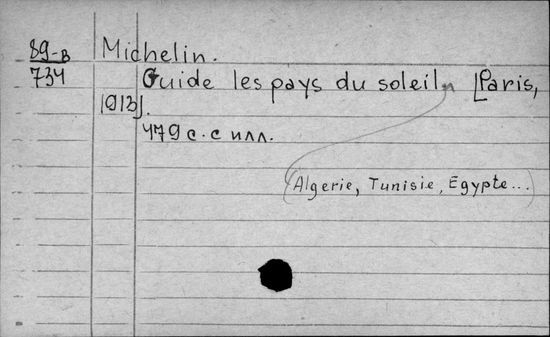 89-в Michelin.
734 Guide les pays du soleil [Paris,
1913].
479 с. с илл.
(Algerie, Tunisie, Egypte...)